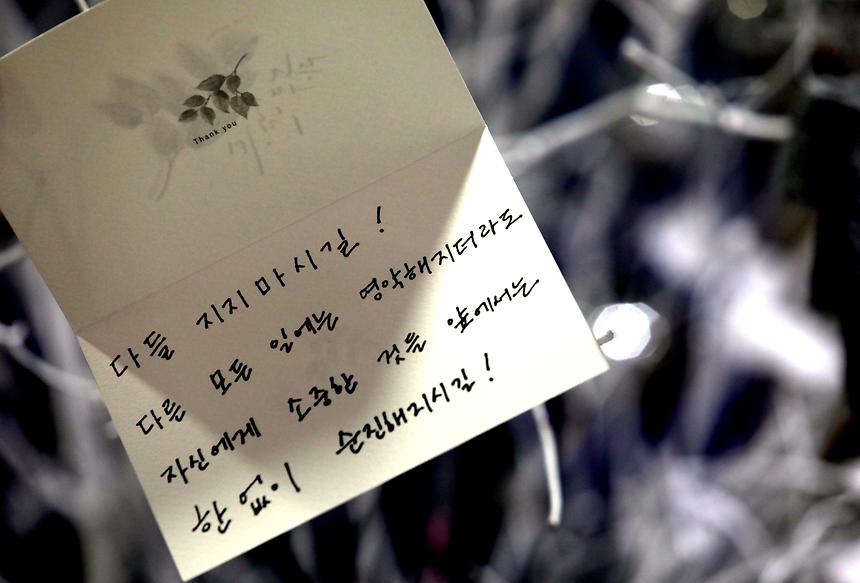 Thank you
다들 지지 마시길 !
다른 모든 일에는 영악해지더라도
자신에게 소중한 것들 앞에서는
한 없이 순진해지시길 !